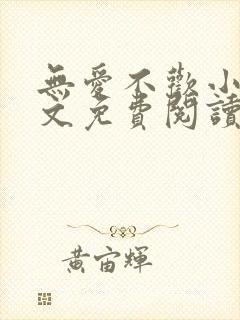 無愛不歡小
文免費閱讀
黃宙輝